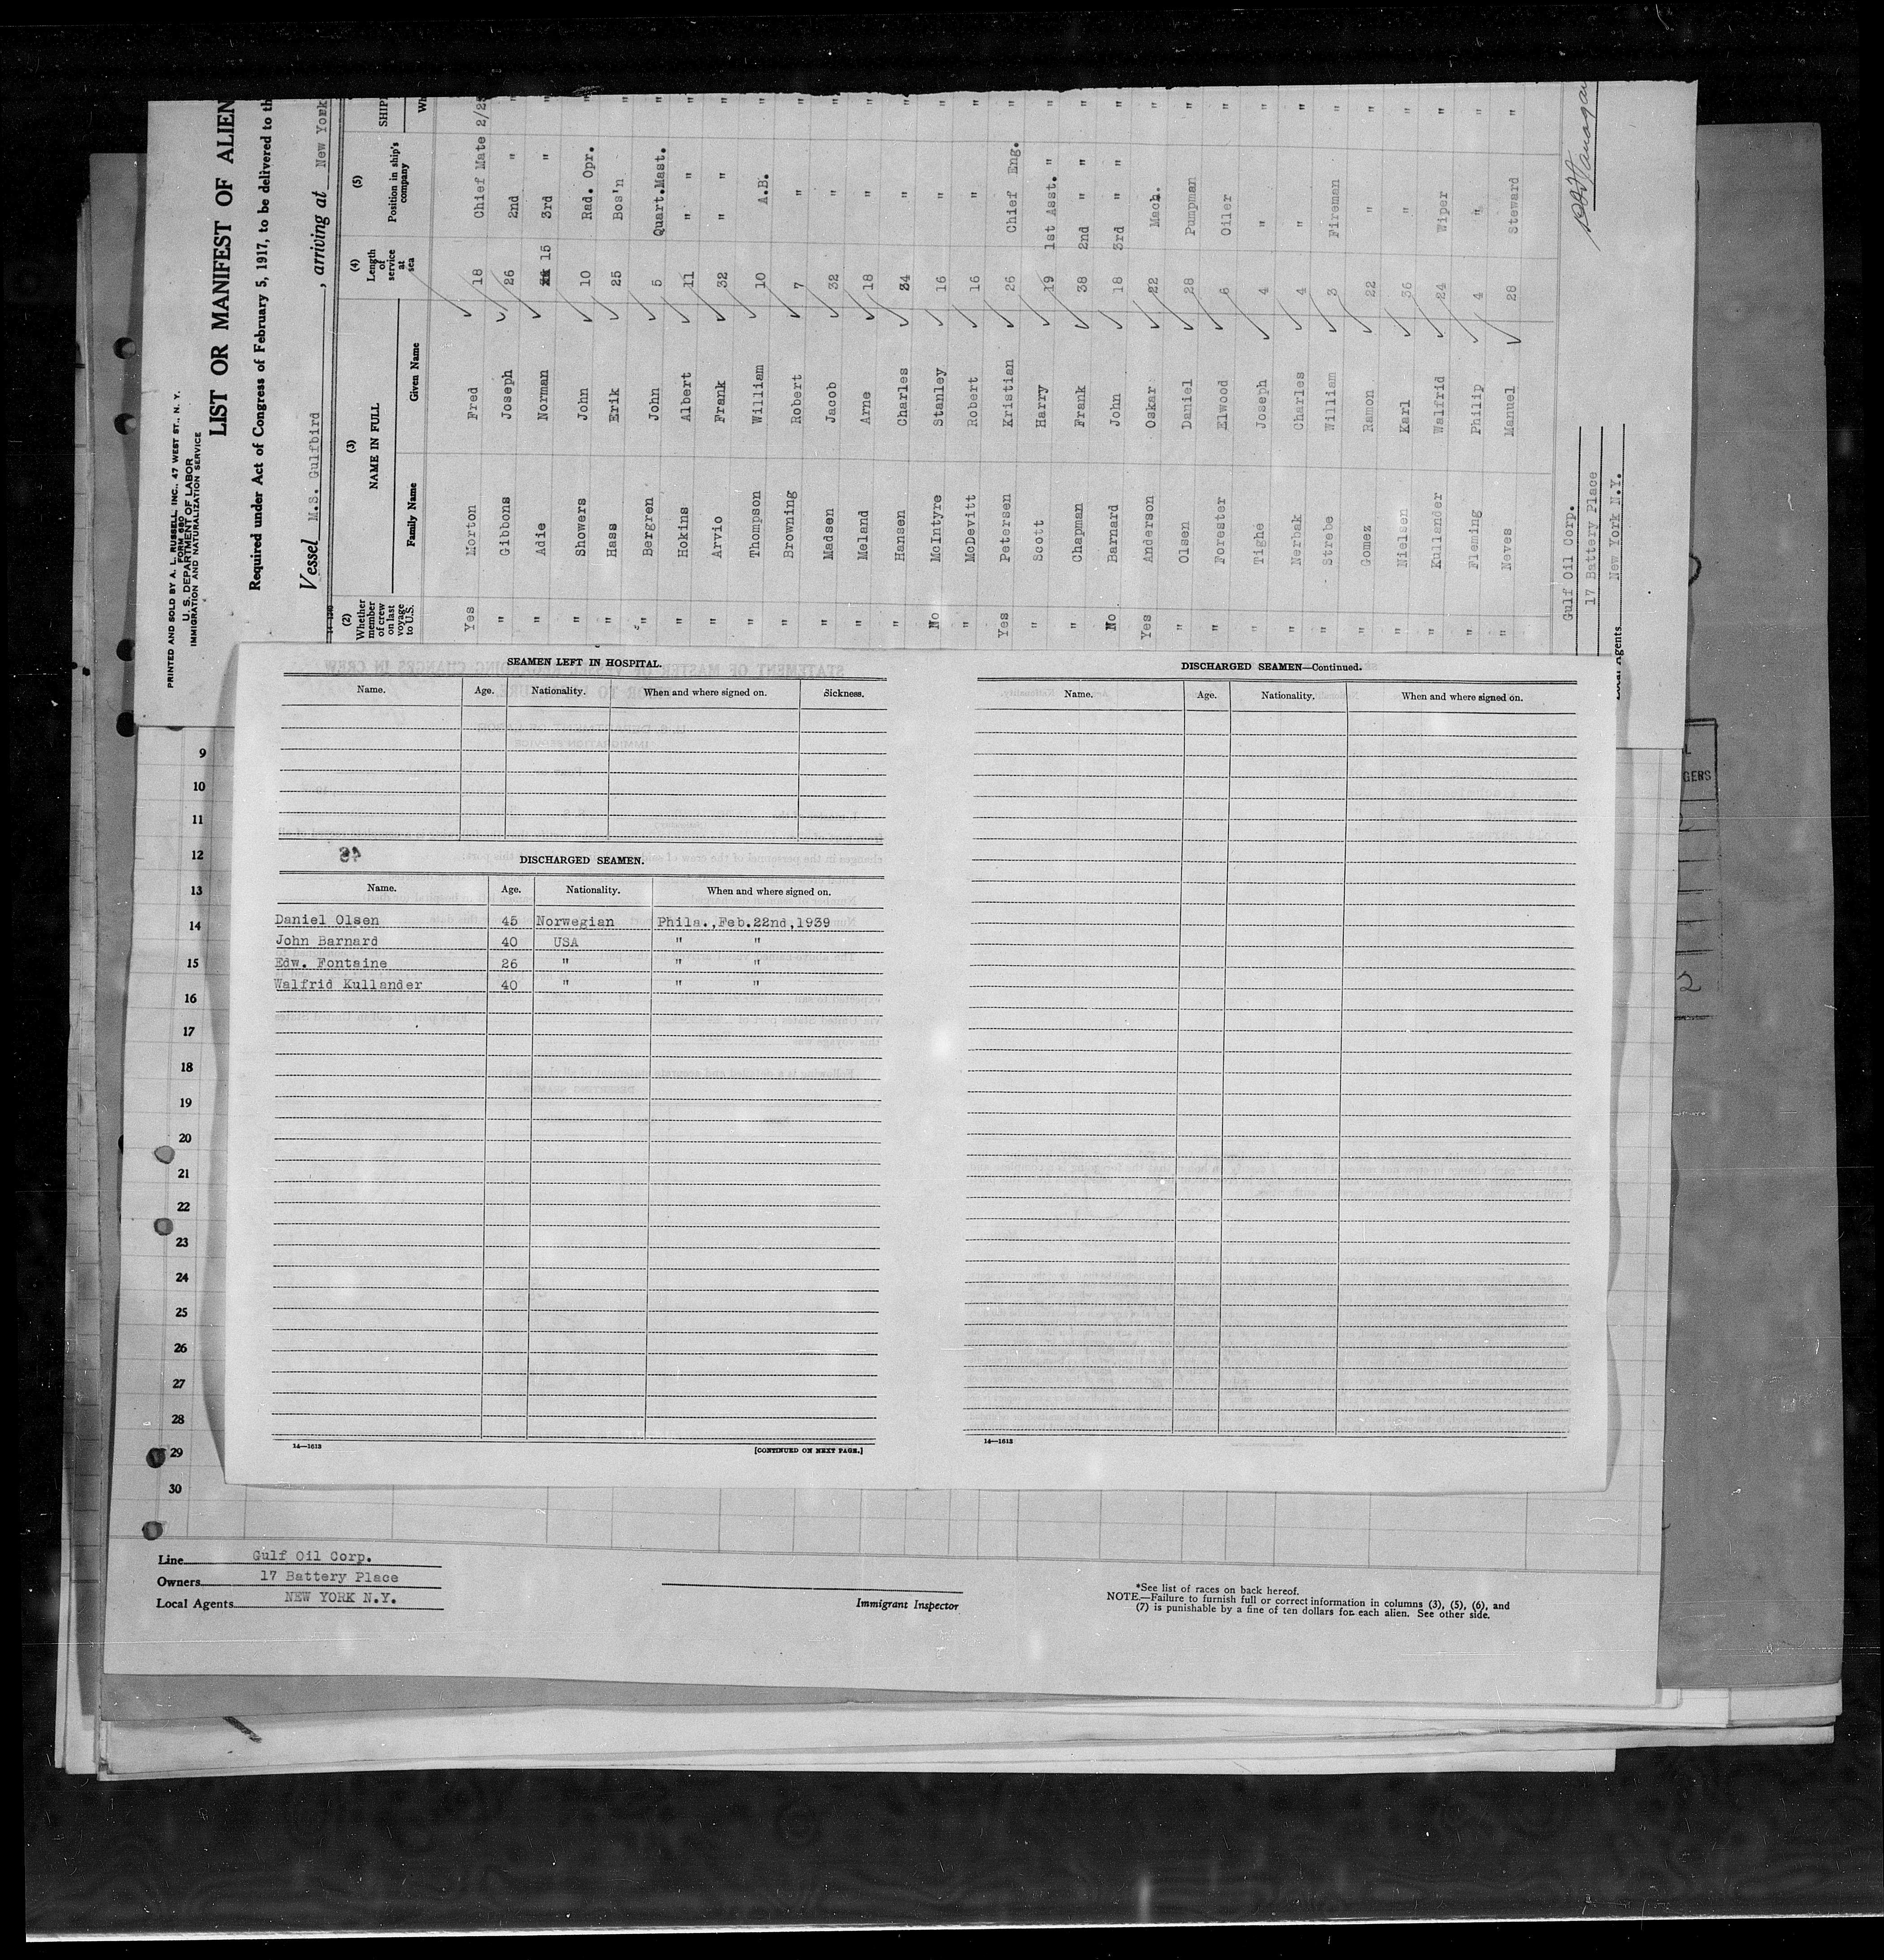 PRINTED AND SOLD BY A. L. RUSSELL, INC., 47 WEST ST., N. Y.
FORM 680
U. S. DEPARTMENT OF LABOR
IMMIGRATION AND NATURALIZATION SERVICE
LIST OR MANIFEST OF ALIEN
Required under Act of Congress of February 5, 1917, to be delivered to th
Vessel M.S. Gulfbird, arriving at New York
(2) Whether member of crew on last voyage to U.S.
(3) NAME IN FULL
Family Name Given Name
(4) Length of service at sea
(5) Position in ship's company
SHIP
Wh
Yes Morton Fred 18 Chief Mate 2/2
" Gibbons Joseph 26 2nd " "
" Adie Norman 15 3rd " "
" Showers John 10 Rad. Opr. "
" Hass Erik 25 Bos'n "
" Bergren John 5 Quart.Mast. "
" Hokins Albert 11 " " "
" Arvio Frank 32 " " "
" Thompson William 10 A.B. "
" Browning Robert 7 " "
" Madsen Jacob 32 " "
" Meland Arne 18 " "
" Hansen Charles 34 " "
No McIntyre Stanley 16 " "
" McDevitt Robert 16 " "
Yes Petersen Kristian 25 Chief Eng. "
" Scott Harry 19 1st Asst. " "
" Chapman Frank 38 2nd " " "
No Barnard John 18 3rd " " "
Yes Anderson Oskar 22 Mach. "
" Olsen Daniel 28 Pumpman "
" Forester Elwood 6 Oiler "
" Tighe Joseph 4 " "
" Nerbak Charles 4 " "
" Strebe William 3 Fireman "
" Gomez Ramon 22 " "
" Nielsen Karl 36 " "
" Kullander Walfrid 24 Wiper "
" Fleming Philip 4 " "
" Neves Manuel 28 Steward "
Gulf Oil Corp.
17 Battery Place
Local Agents New York N.Y.
SEAMEN LEFT IN HOSPITAL.
Name. Age. Nationality. When and where signed on. Sickness.
DISCHARGED SEAMEN.
Name. Age. Nationality. When and where signed on.
Daniel Olsen 45 Norwegian Phila.,Feb.22nd,1939
John Barnard 40 USA " "
Edw. Fontaine 26 " " "
Walfrid Kullander 40 " " "
14—1613 [CONTINUED ON NEXT PAGE.]
DISCHARGED SEAMEN—Continued.
Name. Age. Nationality. When and where signed on.
14—1613
9
10
11
12
13
14
15
16
17
18
19
20
21
22
23
24
25
26
27
28
29
30
GERS
2
Line Gulf Oil Corp.
Owners 17 Battery Place
Local Agents NEW YORK N.Y.
Immigrant Inspector
*See list of races on back hereof.
NOTE.—Failure to furnish full or correct information in columns (3), (5), (6), and
(7) is punishable by a fine of ten dollars for each alien. See other side.